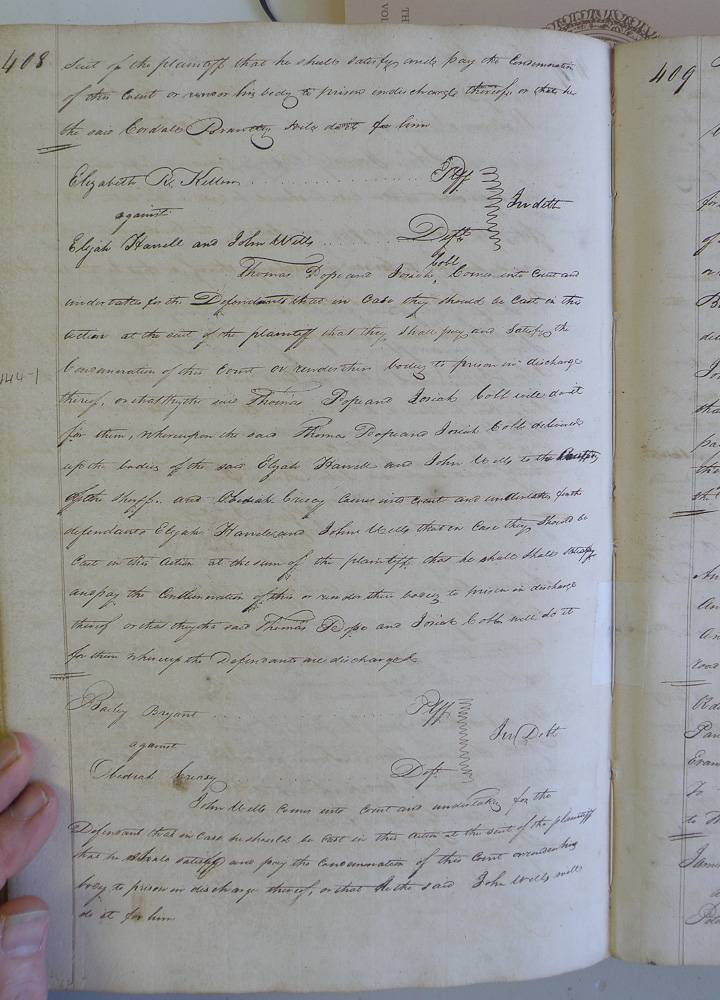 408
suit of the plaintiff that he shall satisfy and pay the Condemnation
of this Court or render his body to prison in discharge thereof, or that he
the said Cordale Brantley will do it for him
Elizabeth R. Killen Plff
against In debt
Elijah Harrell and John Wells Defts
Cobb
Thomas Pope and Josiah Comes into Court and
undertakes for the Defendants that in Case they should be Cast in this
action at the suit of the plaintiff that they shall pay and Satisfy the
Condemnation of this Court or render their bodies to prison in discharge
thereof, or that they the said Thomas Pope and Josiah Cobb will do it
for them, Whereupon the said Thomas Pope and Josiah Cobb delivered
up the bodies of the said Elijah Harrell and John Wells to the
of the Sheriff. and Obediah Creasy Comes into Court and undertakes for the
defendants Elijah Harrell and John Wells that in Case they Should be
Cast in this Action at the sum of the plaintiff that he shall Shall Satisfy
and pay the Condemnation of this or render their bodies to prison in discharge
thereof or that they the said Thomas Pope and Josiah Cobb will do it
for them whereup the Defendants are discharged
Baily Bryant Plff
against In Debt
Obediah Creasy Deft
John Wells Comes into Court and undertakes for the
Defendant that in Case he should be Cast in this Action at the suit of the plaintiff
that he shall satisfy and pay the Condemnation of this Court or render his
body to prison in discharge thereof, or that he the said John Wells will
do it for him
409